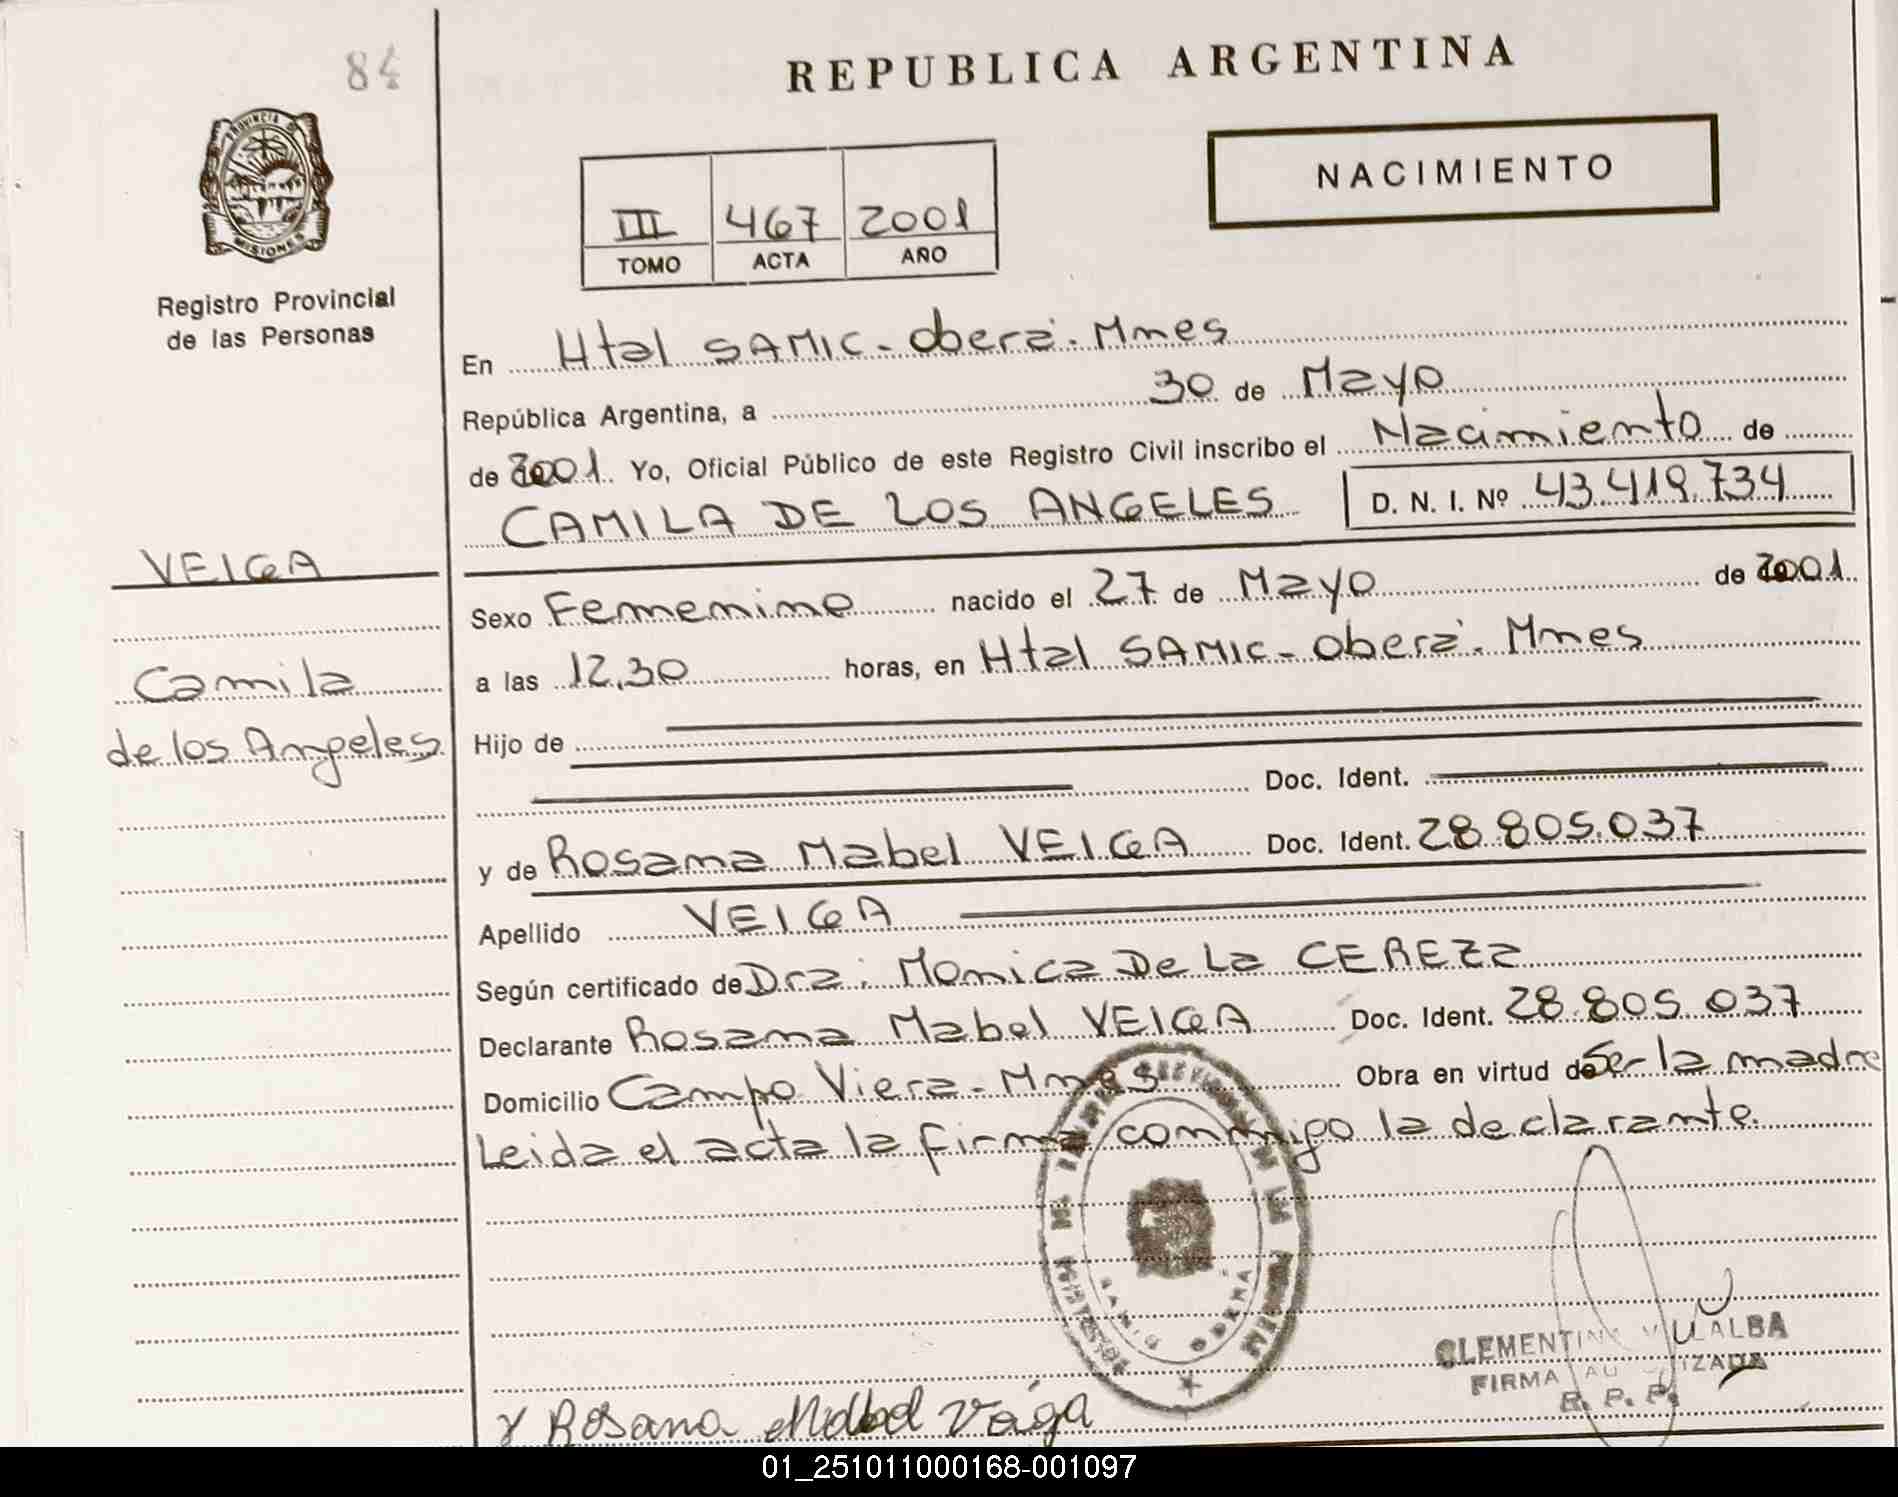 84
REPUBLICA ARGENTINA
PROVINCIA DE
MISIONES
Registro Provincial
de las Personas
NACIMIENTO
III 467 2001
TOMO ACTA AÑO
En Htal SAMIC - Oberá. Mnes
República Argentina, a 30 de Mayo
de 2001. Yo, Oficial Público de este Registro Civil inscribo el Nacimiento de
CAMILA DE LOS ANGELES D. N. I. Nº 43.419.734
VEIGA
Camila
de los Angeles
Sexo Femenino nacido el 27 de Mayo de 2001
a las 12,30 horas, en Htal SAMIC - Oberá. Mnes
Hijo de
Doc. Ident.
y de Rosana Mabel VEIGA Doc. Ident. 28.805.037
Apellido VEIGA
Según certificado de Dra. Monica De La CEREZA
Declarante Rosana Mabel VEIGA Doc. Ident. 28.805.037
Domicilio Campo Viera - Mnes Obra en virtud de Ser la madre
Leida el acta la firma conmigo la declarante.
SAMIC OBERÁ
CLEMENTINA VILLALBA
FIRMA AUTORIZADA
R. P. P.
Rosana Mabel Veiga
01_251011000168-001097